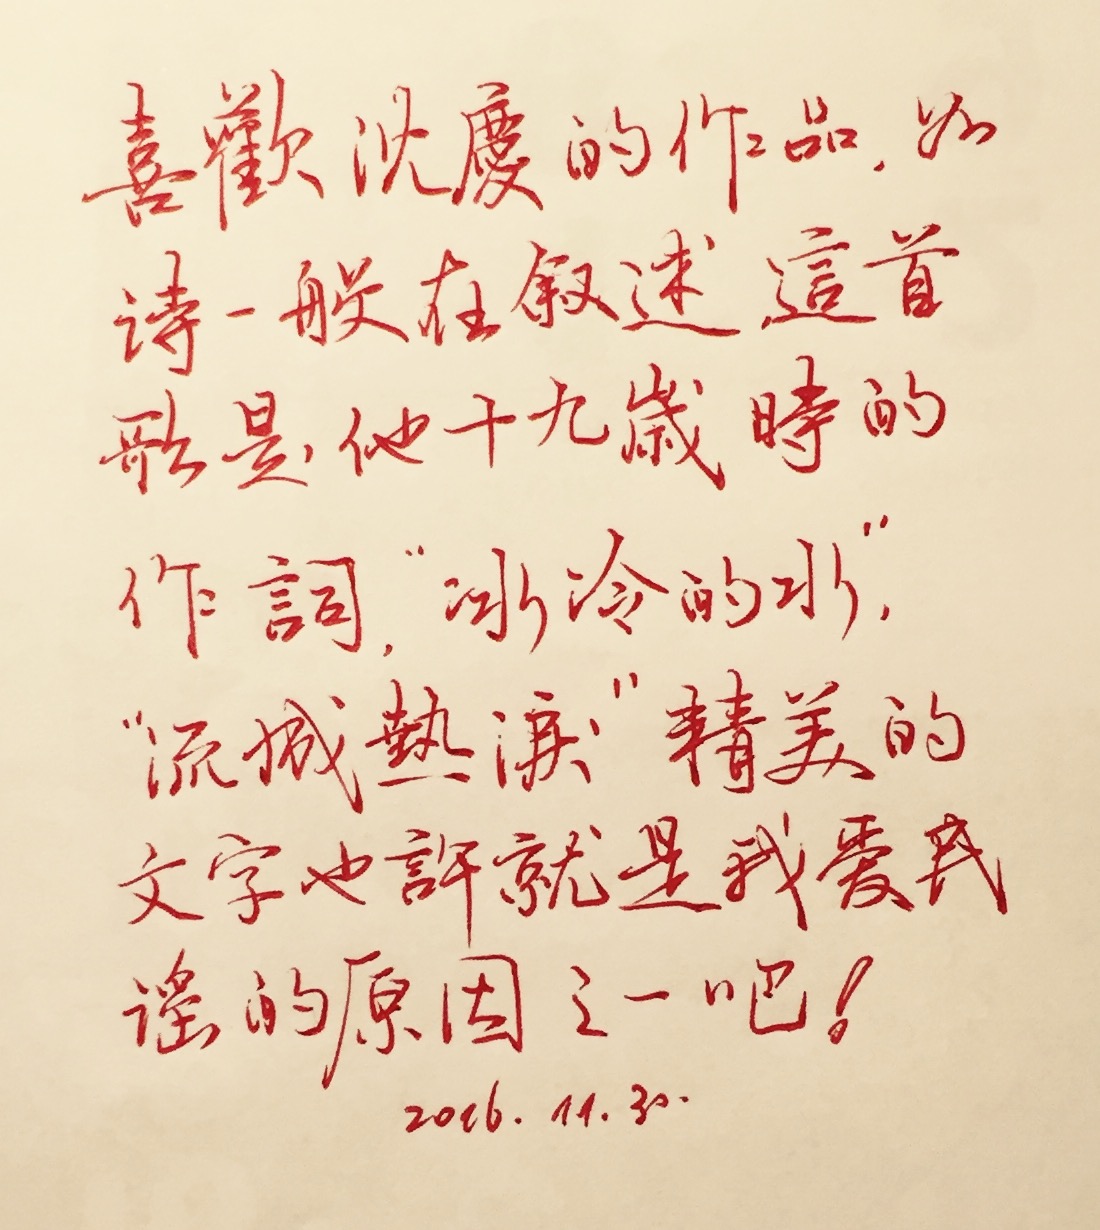 喜歡沈慶的作品,如
诗一般在叙述這首
歌是他十九歲時的
作詞,“冰冷的水”,
“流緘熱淚”精美的
文字也許就是我爱民
谣的原因之一吧!
2016.11.30.